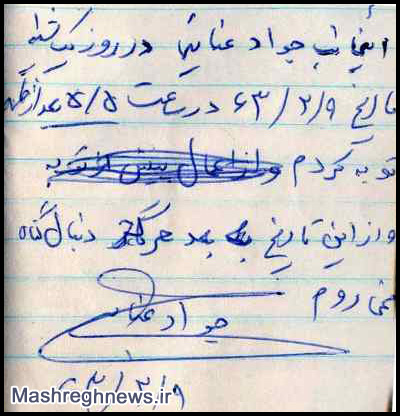 اینجانب جواد عنایتی در روز یکشنبه
تاریخ ۶۳/۲/۹ در ساعت ۵/۵ بعد از ظهر
توبه کردم و از اعمال پیش از توبه
و از این تاریخ به بعد هرگز دنبال گناه
نمی روم
جواد عنایتی
۶۳/۲/۹
Mashreghnews.ir